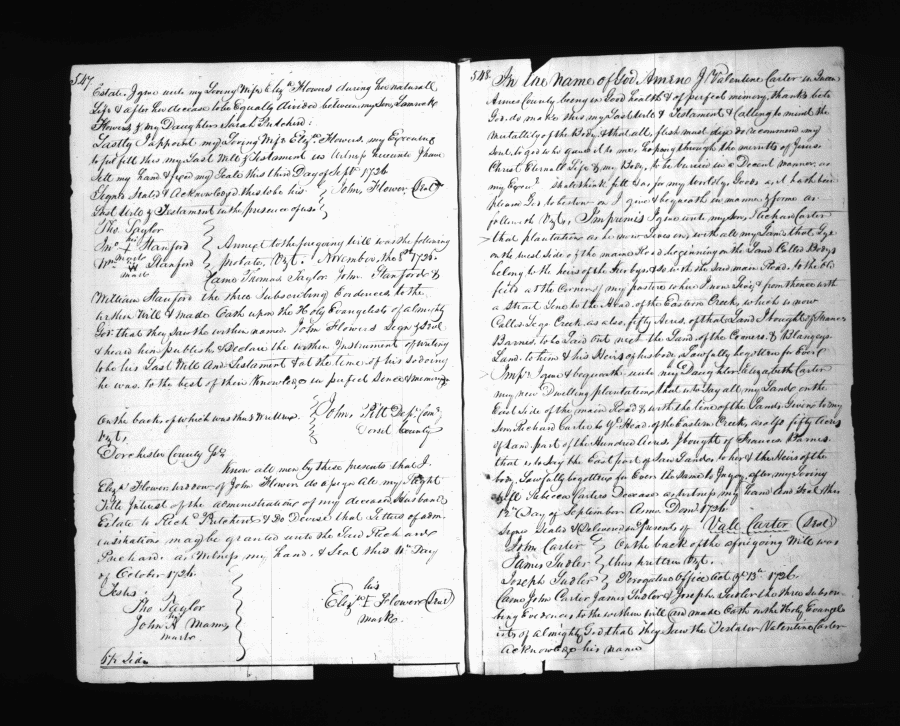 547
Estate. I give unto my Loving Wife Eliza. Flowers during her naturall
Life & after her decease to be Equally divided between my Son Lamrock
Flowers & my Daughter Sarah Pritchard:
Lastly I appoint my Loving Wife Eliza. Flowers my Executrix
to full fill this my Last Will & Testament as Witness hereunto I have
Sett my hand & fixed my Seale this third Day of Septr. 1736
Signed Sealed & Acknowledged this to be his
Last Will & Testament in the presence of us:
John Flower (Seal)
Tho. Taylor
Jno. his Stanford
mark
Wm. W Stanford
mark
Annext to the foregoing Will was the following
probate, Vizt. November the 8th 1736.
Came Thomas Taylor John Stanford &
William Stanford the three Subscribing Evidences to the
within Will & made Oath upon the Holy Evangelists of almighty
God that they Saw the within named John Flowers Sign & Seal
& heard him publish & Declare the within Instrument of writing
to be his Last Will And Testament & at the time of his So doing
he was to the best of their Knowledge in perfect Sence & memory
John Pitt Depy. Comy.
Dorset County
On the back of which was thus Written
Vizt.
Dorchester County Ss.
Know all men by these presents that I
Eliza. Flower widdow of John Flower do assign all my Right
Title Interest of the administrations of my deceased Husbands
Estate to Richd. Pritchard & Do Desire that Letters of adm-
inistrations may be granted unto the Said Richard
Prichard as Witness my hand & Seal this 4th Day
of October 1736
Testes:
Tho Taylor
John H Mannn
mark
his
Eliza. E Flower (Seal)
mark
548
In the Name of God Amen I Valentine Carter in Queen
Annes County being in Good health & of perfect memory, thanks be to
God, do make this my Last Will & Testament & calling to mind the
mortallity of the Body, & that all flesh must dye do recommend my
Soul to god who gave it to me, hoping through the merritts of Jesus
Christ Eternall Life & my Body, to be buried in a Decent manner, as
my Exrs. Shall think fitt & as for my Worldly Goods as it hath been
pleased God to bestow on I give & bequeath in manner & forme as
followeth Vizt. Imprimis I give unto my Son Richard Carter
that plantation as he now Lives on with all my Land that Lye
on the west Side of the main Road beginning on the Land Called
belong to the heirs of the & So with the Said main Road to the
at the Corner of my pasture where I now Live, & from thence with
a Strait Line to the Head of the Eastern Creek, which is now
Called Creek, as also, fifty Acres of that Land I bought of Frances
Barnes, to be Laid out next the Land of the Comers &
Land to him & his Heirs of his body Lawfully begotten for Ever
Imps. I give & bequeath unto my Daughter Elizabeth Carter
my new Dwelling plantation that is to Say all my Lands on the
East Side of the main Road & with the Line of the Lands Given to my
Son Richard Carter to ye Head of the Eastern Creek, as also fifty Acres
of Land part of the Hundred Acres I bought of Frances Barnes
that is to Say the East part of Said Lands to her & the Heirs of the
body Lawfully begotten for Ever the Same to Injoy after my Loving
Wife Rebecca Carters Decease as Witness my hand And Seal this
12th Day of September Anno Dom. 1734
Signed Sealed & Delivered in presents of
Vall Carter (Seal)
John Carter
James Sudler
Joseph Sudler
On the back of the aforegoing Will was
thus written Vizt.
Perogative Office Oct. ye 13th 1736
Came John Carter James Sudler & Joseph Sudler the three Subscri-
bing Evidences to the within Will and made Oath on the Holy Evangel-
ists of almighty God that they Saw the Testator Valentine Carter
Acknowledge his name